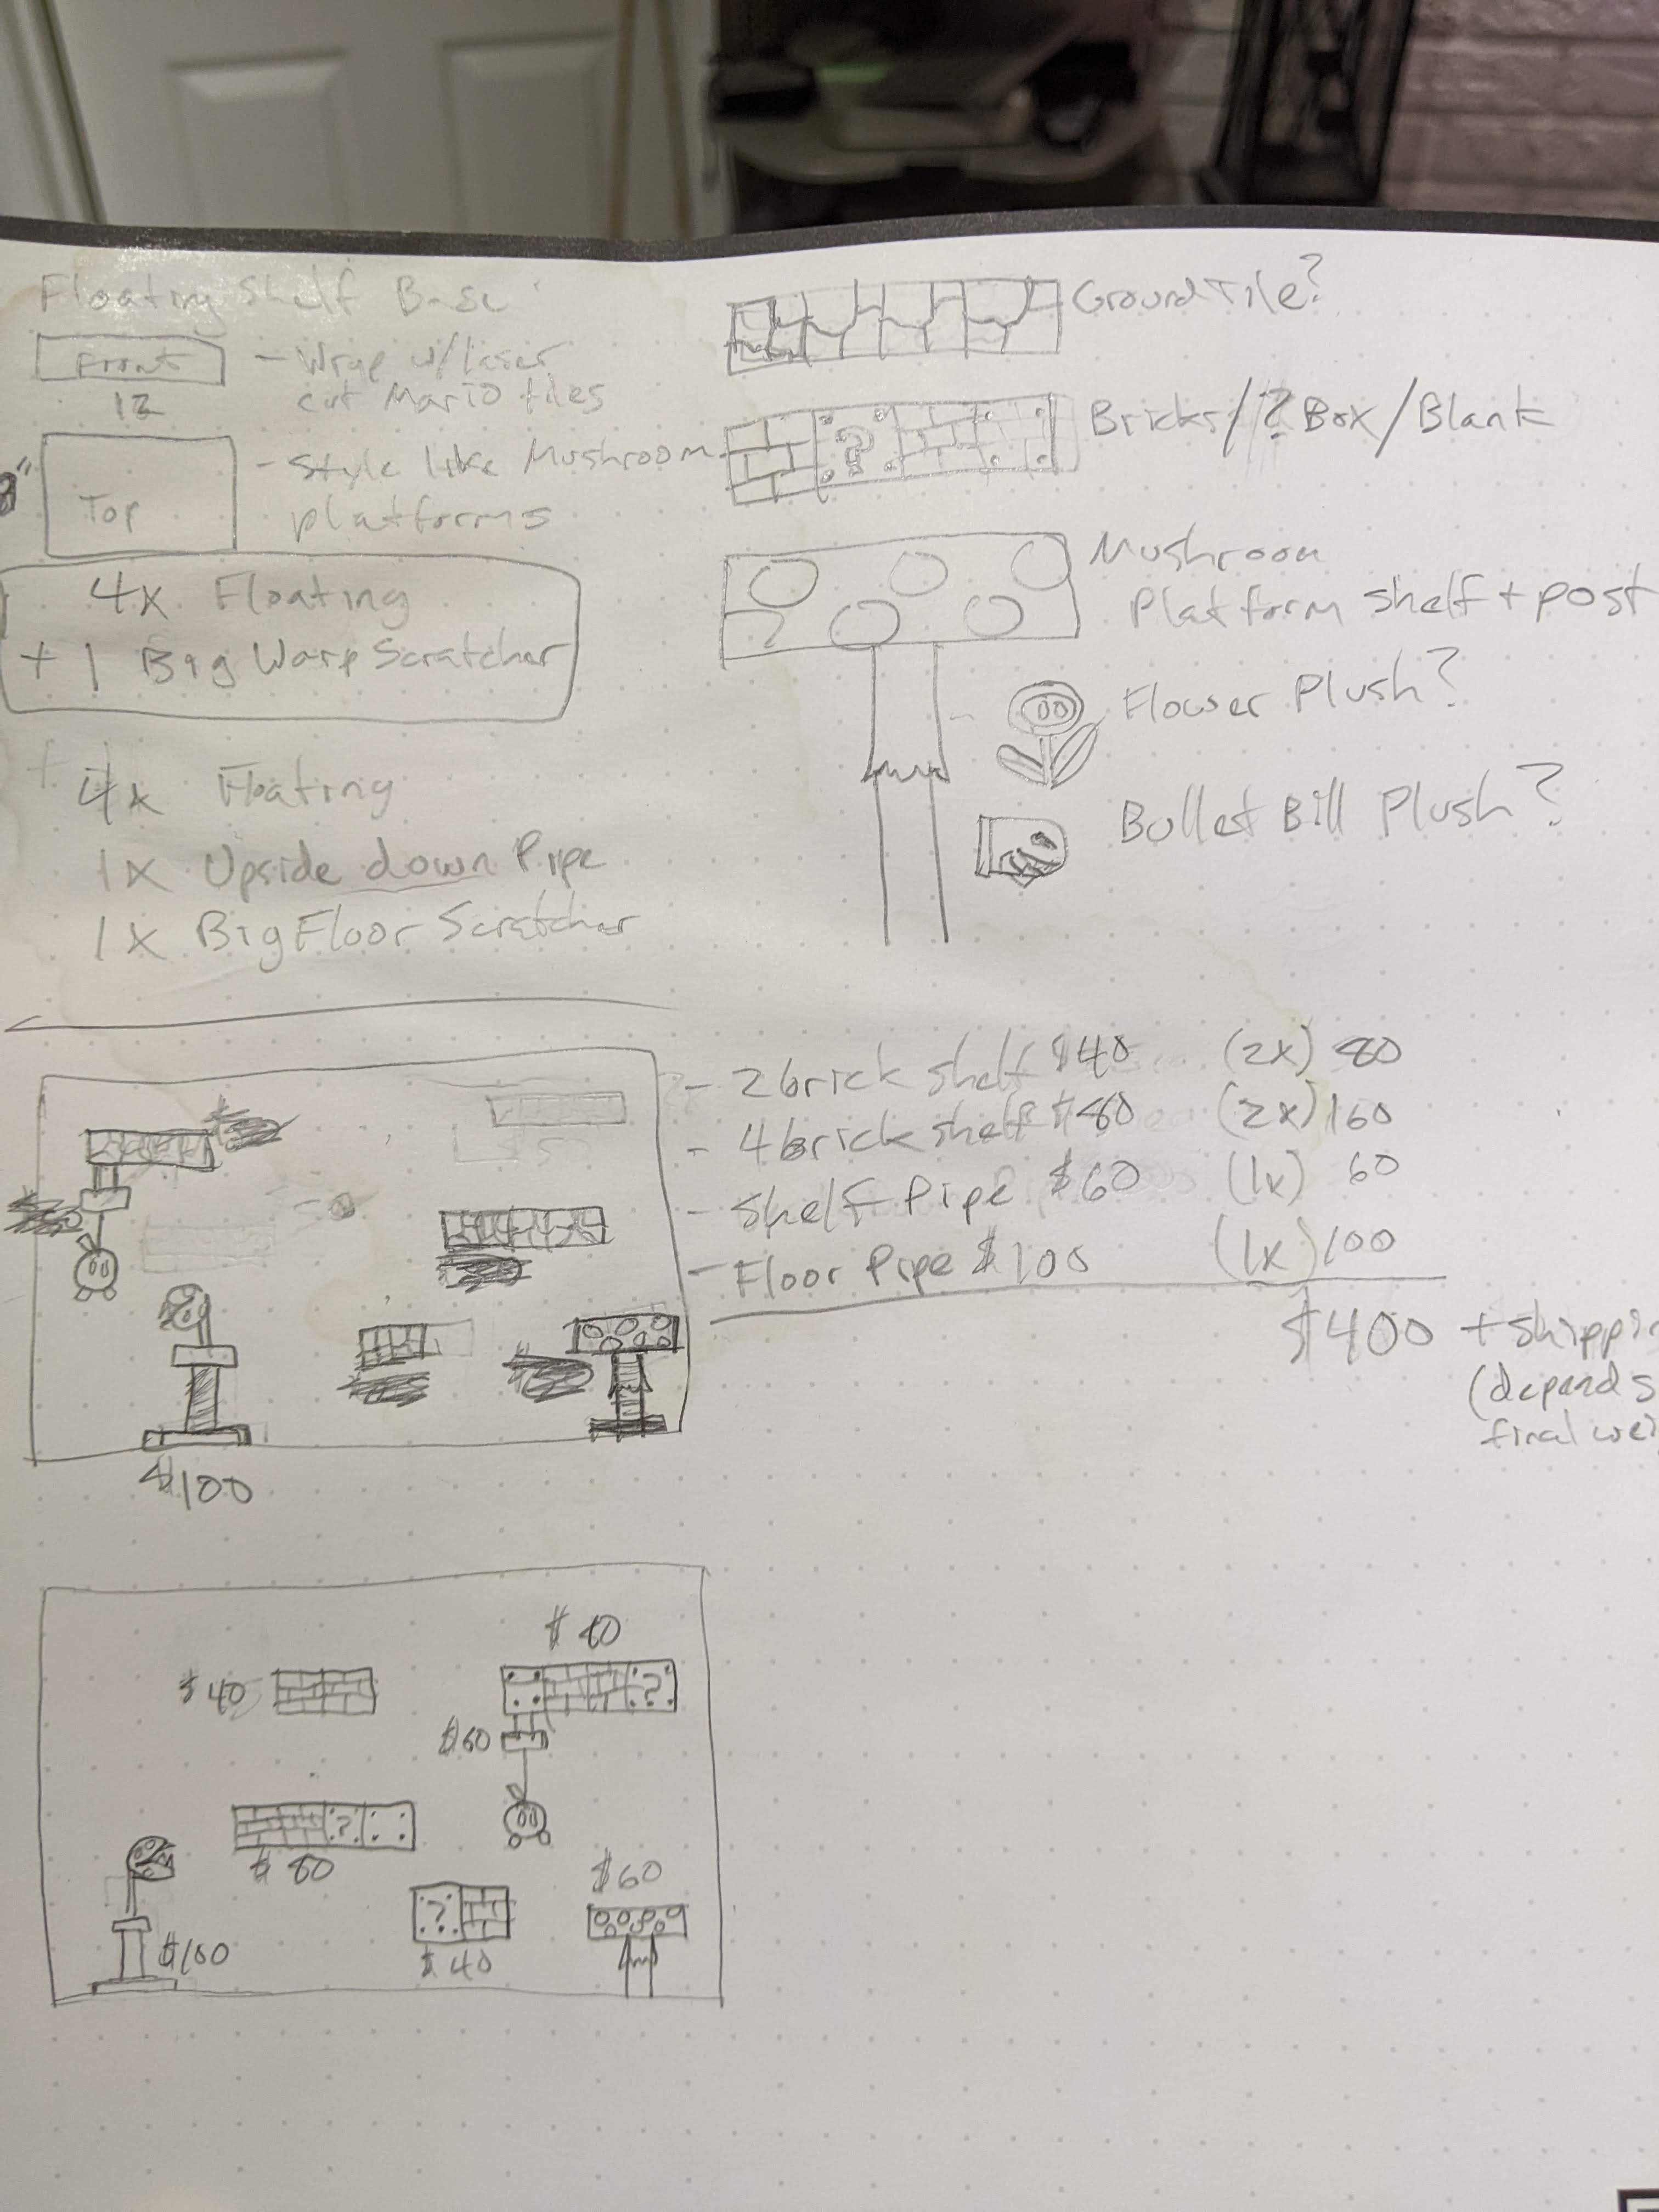 Floating Shelf Base
Front
12
- Wrap w/laser
cut Mario tiles
8"
Top
- Style like Mushroom
platforms
4x Floating
+ 1 Big Warp Scratcher
4x Floating
1x Upside down Pipe
1x Big Floor Scratcher
Ground Tile?
?
Bricks/? Box/Blank
Mushroom
Platform shelf + post
Flower Plush?
Bullet Bill Plush?
- 2 brick shelf $40 (2x) 80
- 4 brick shelf $80 (2x) 160
- Shelf Pipe $60 (1x) 60
- Floor Pipe $100 (1x) 100
$400 + shippin
(depends
final wei
$100
$40
$80
?
$60
?
$80
$100
?
$40
$60